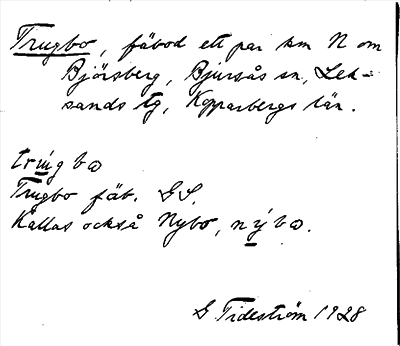 Trugbo, fäbod ett par km N om
Björsberg, Bjursås sn, Lek-
sands tg, Kopparbergs län.
Trugbo fäb. GS.
Kallas också Nybo, nýbɷ.
G Tideström 1928